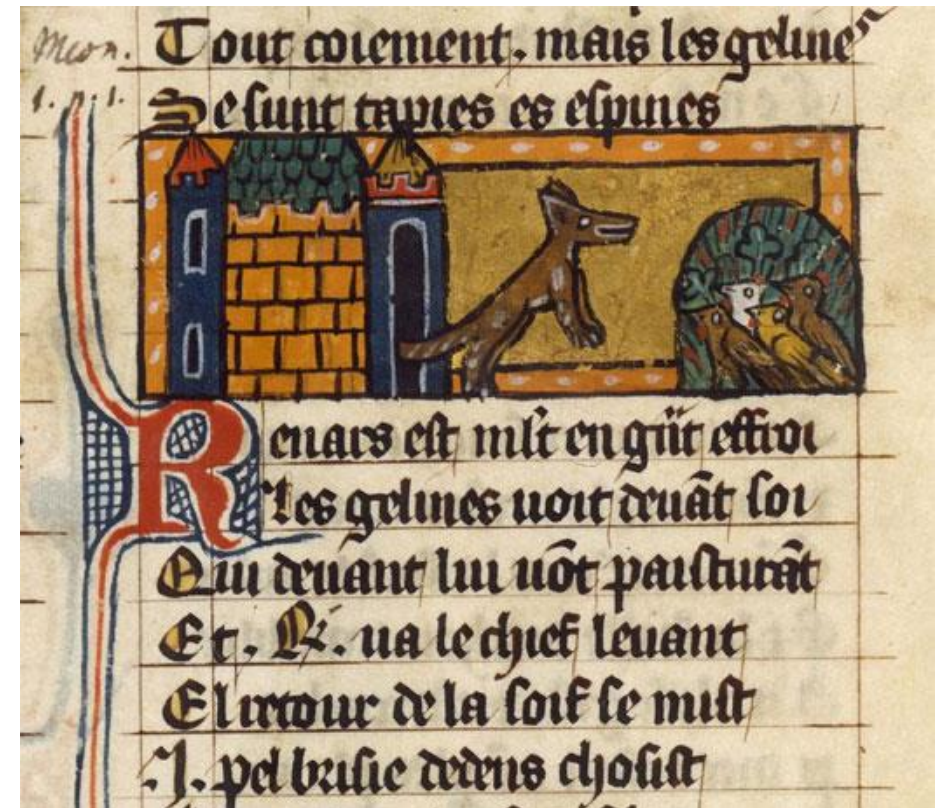 Meon.
Tout coiement. mais les geline
1. p. 1.
Se sunt tapies es espines
Renars est mlt en gñt effroi
Les gelines uoit deuãt soi
Qui deuant lui uõt paisturãt
Et . R . ua le chief leuant
El retour de la soif se mist
.I. pel brisie dedens chosist